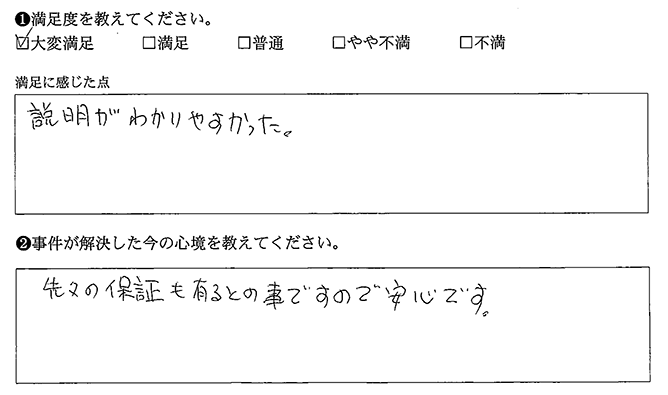 ❶満足度を教えてください。
☑大変満足 □満足 □普通 □やや不満 □不満
満足に感じた点
説明がわかりやすかった。
❷事件が解決した今の心境を教えてください。
先々の保証も有るとの事ですので安心です。